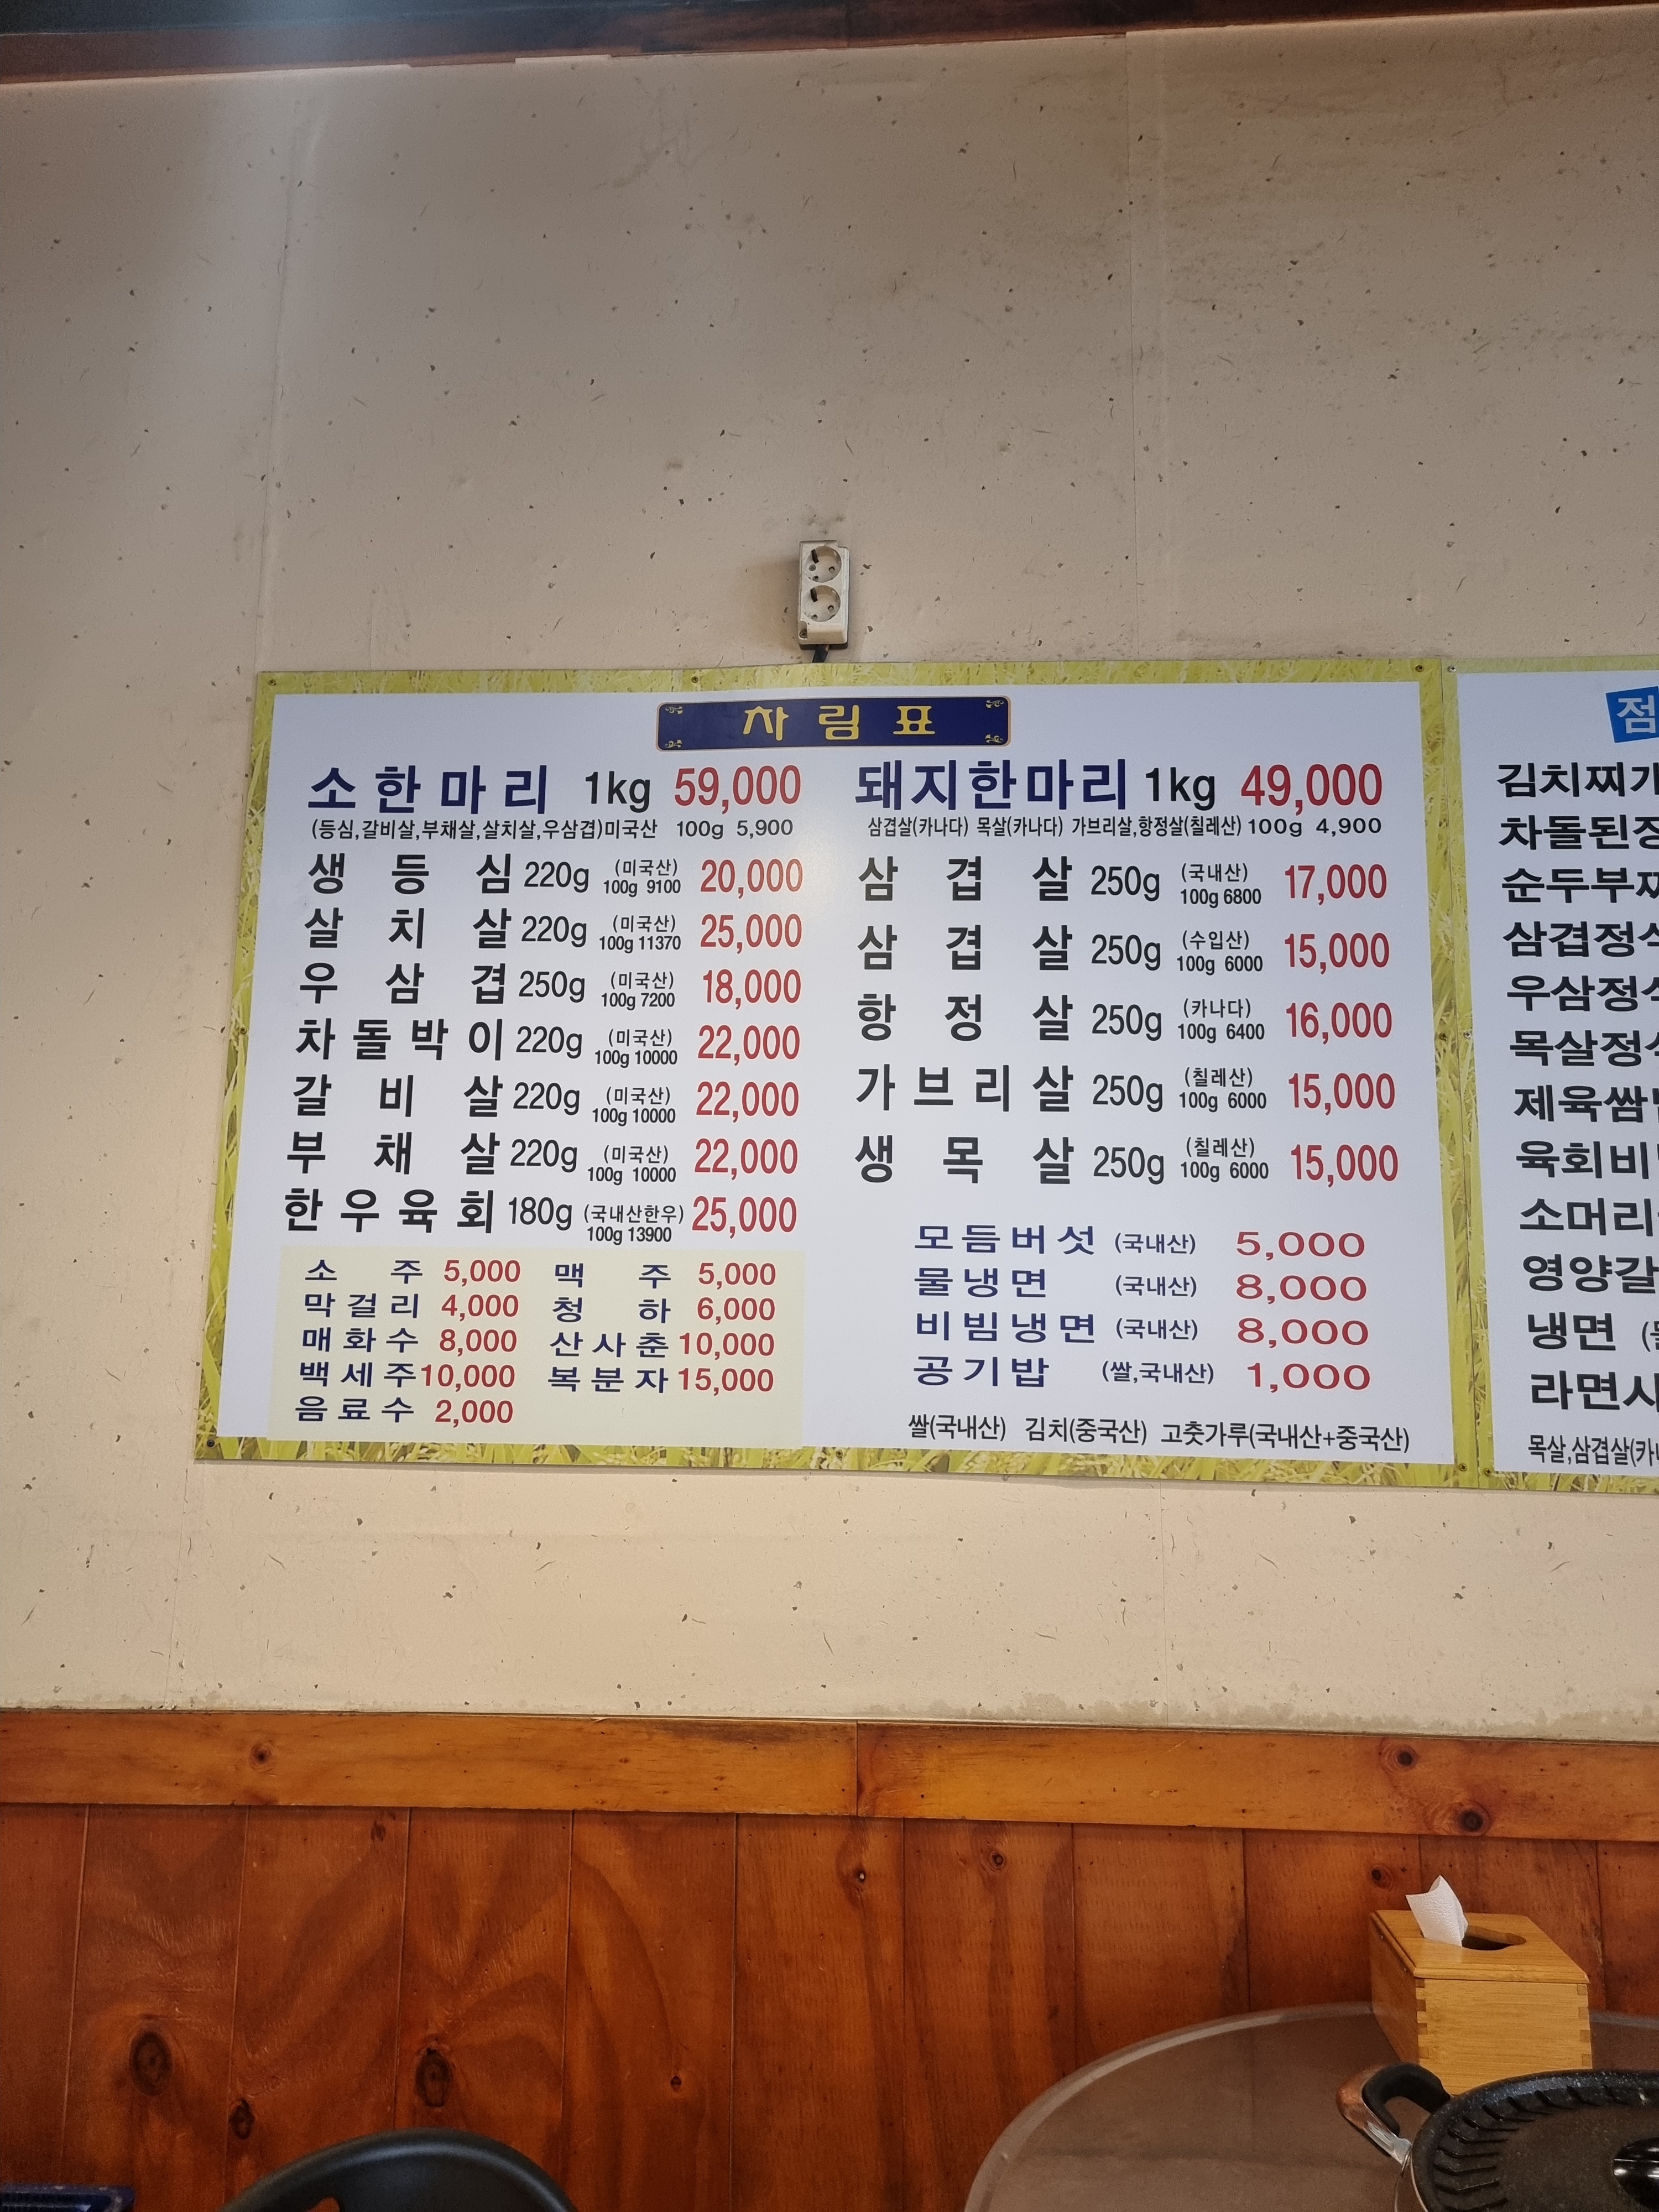 차림표
소한마리 1kg 59,000
(등심,갈비살,부채살,살치살,우삼겹)미국산 100g 5,900
생등심 220g (미국산) 100g 9100 20,000
살치살 220g (미국산) 100g 11370 25,000
우삼겹 250g (미국산) 100g 7200 18,000
차돌박이 220g (미국산) 100g 10000 22,000
갈비살 220g (미국산) 100g 10000 22,000
부채살 220g (미국산) 100g 10000 22,000
한우육회 180g (국내산한우) 100g 13900 25,000
소주 5,000 맥주 5,000
막걸리 4,000 청하 6,000
매화수 8,000 산사춘 10,000
백세주 10,000 복분자 15,000
음료수 2,000
돼지한마리 1kg 49,000
삼겹살(카나다) 목살(카나다) 가브리살,항정살(칠레산) 100g 4,900
삼겹살 250g (국내산) 100g 6800 17,000
삼겹살 250g (수입산) 100g 6000 15,000
항정살 250g (카나다) 100g 6400 16,000
가브리살 250g (칠레산) 100g 6000 15,000
생목살 250g (칠레산) 100g 6000 15,000
모듬버섯 (국내산) 5,000
물냉면 (국내산) 8,000
비빔냉면 (국내산) 8,000
공기밥 (쌀,국내산) 1,000
쌀(국내산) 김치(중국산) 고춧가루(국내산+중국산)
점
김치찌
차돌된
순두부
삼겹정
우삼정
목살정
제육쌈
육회비
소머리
영양갈
냉면
라면사
목살,삼겹살(카